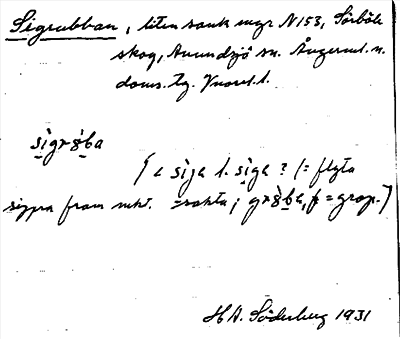 Sigrubban, liten sank myr N 153, Sörböle
skog, Anundsjö sn. Ångerml. n.
doms. tg. Vuorel. l.
sigr8ba
[< sija l. siga? (= flyta
sippra fram sakt. = sakta; gr8ba, f = grop.]
H A. Söderberg 1931